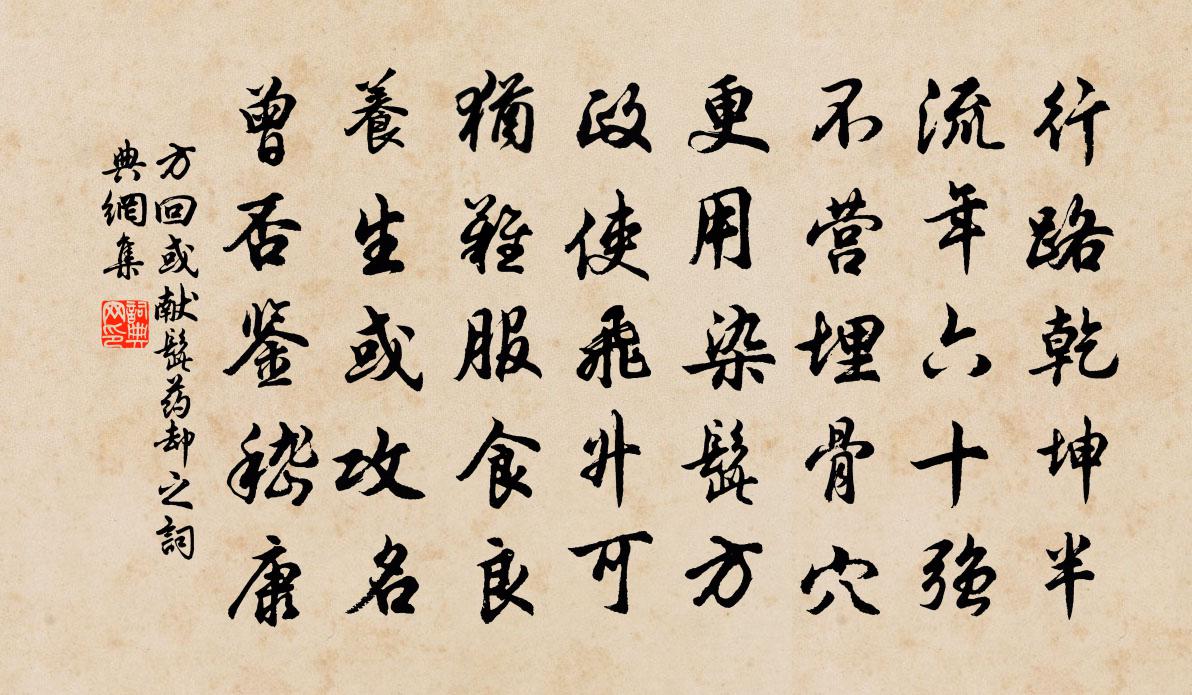 行路乾坤半
流年六十强
不营埋骨穴
更用染髭方
政使飛升可
猶難服食良
養生或攻名
曾否鉴嵇康
方回或献髭药却之詞
典網集
詞典网印